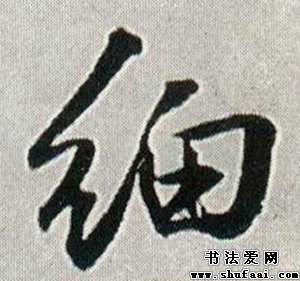 细
书法爱网
www.shufaai.com